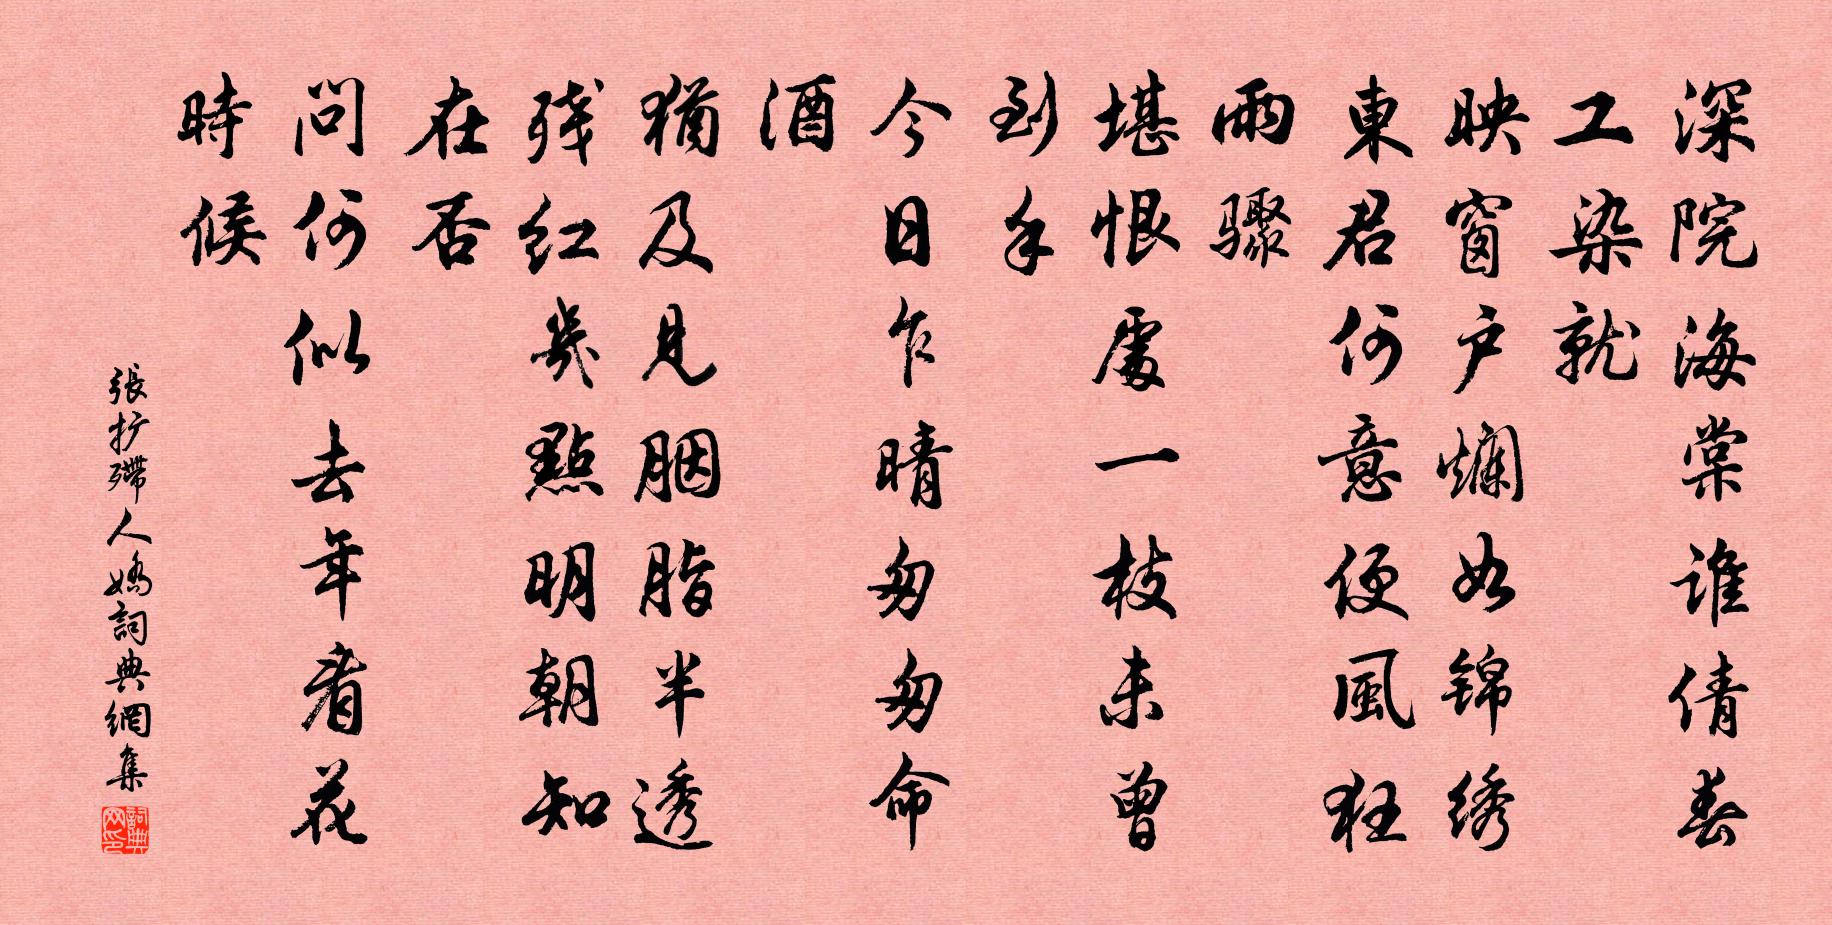 深院海棠誰倩春
工染就
映窗户爛如锦绣
東君何意便風狂
雨驟
堪恨處一枝未曾
到手
今日乍晴匆匆命
酒
猶及見胭脂半透
残红幾點明朝知
在否
問何似去年看花
時候
張扩殢人嬌詞典網集
詞典网印